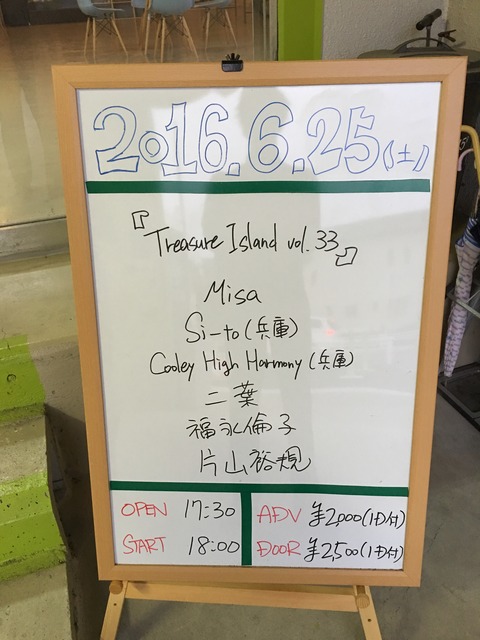 2016.6.25(土)
『Treasure Island vol.33』
Misa
Si-to(兵庫)
Cooley High Harmony(兵庫)
二葉
福永倫子
片山裕規
OPEN 17:30
START 18:00
ADV ¥2,000(1D付)
DOOR ¥2,500(1D付)